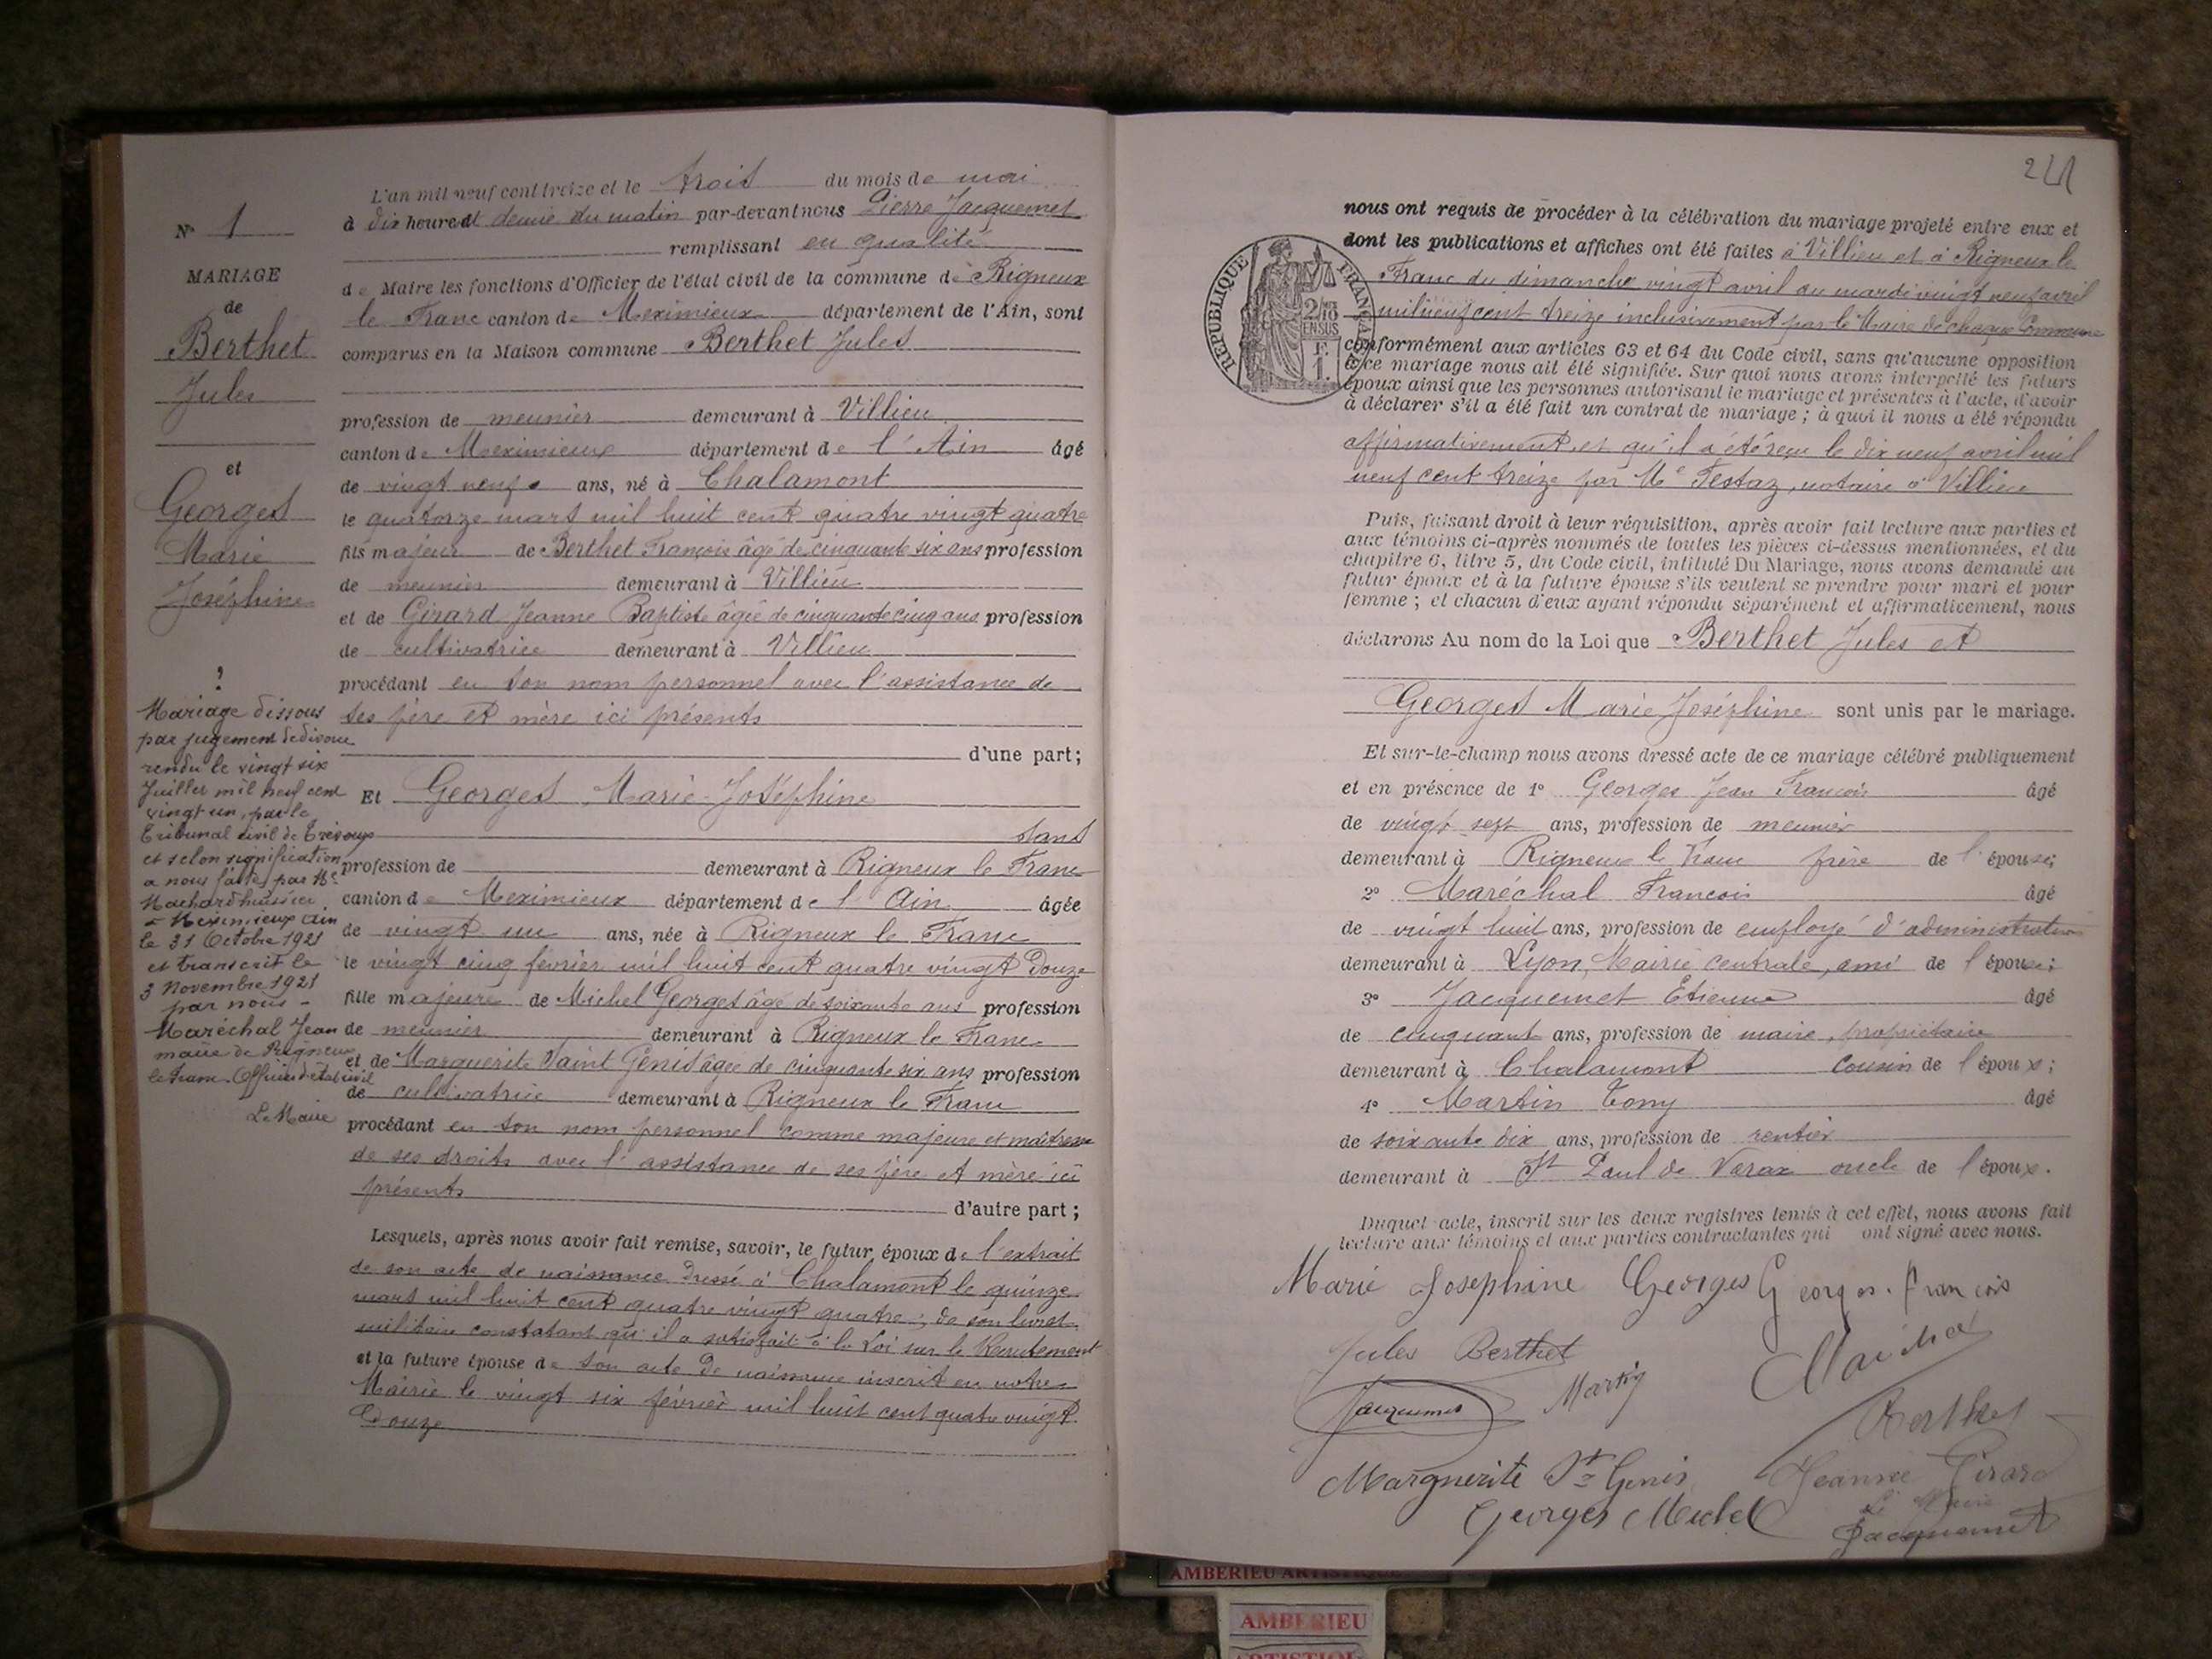 L'an mil neuf cent treize et le trois du mois de mai
à dix heures et demie du matin par-devant nous Pierre Jacquemet
remplissant en qualité
de Maire les fonctions d'Officier de l'état civil de la commune de Rigneux
le Franc canton de Meximieux département de l'Ain, sont
comparus en la Maison commune Berthet Jules
profession de meunier demeurant à Villieu
canton de Meximieux département de l'Ain âgé
de vingt neuf ans, né à Chalamont
le quatorze mars mil huit cent quatre vingt quatre
fils majeur de Berthet François âgé de cinquante six ans profession
de meunier demeurant à Villieu
et de Girard Jeanne Baptiste âgée de cinquante cinq ans profession
de cultivatrice demeurant à Villieu
procédant en son nom personnel avec l'assistance de
ses père et mère ici présents
d'une part;
Et Georges Marie Joséphine
sans
profession de demeurant à Rigneux le Franc
canton de Meximieux département de l'Ain âgée
de vingt un ans, née à Rigneux le Franc
le vingt cinq février mil huit cent quatre vingt douze
fille majeure de Michel Georges âgé de soixante ans profession
de meunier demeurant à Rigneux le Franc
et de Marguerite Saint Genis âgée de cinquante six ans profession
de cultivatrice demeurant à Rigneux le Franc
procédant en son nom personnel comme majeure et maîtresse
de ses droits avec l'assistance de ses père et mère ici
présents
d'autre part;
Lesquels, après nous avoir fait remise, savoir, le futur époux de l'extrait
de son acte de naissance dressé à Chalamont le quinze
mars mil huit cent quatre vingt quatre; de son livret
militaire constatant qu'il a satisfait à la Loi sur le Recrutement
et la future épouse de son acte de naissance inscrit en notre
Mairie le vingt six février mil huit cent quatre vingt
Douze
N° 1
MARIAGE
de
Berthet
Jules
et
Georges
Marie
Joséphine
?
Mariage dissous
par jugement de divorce
rendu le vingt six
Juillet mil neuf cent
vingt-un, par le
Tribunal civil de Trévoux
et selon signification
a nous faite par Me
Machard huissier
à Meximieux Ain
le 31 Octobre 1921
et transcrit le
3 Novembre 1921
par nous -
Maréchal Jean
maire de Rigneux
le Franc. Officier d'état civil
Le Maire
241
REPUBLIQUE FRANÇAISE
2/10
EN SUS
F.
1.
nous ont requis de procéder à la célébration du mariage projeté entre eux et
dont les publications et affiches ont été faites à Villieu et à Rigneux le
Franc du dimanche vingt avril au mardi vingt neuf avril
mil neuf cent treize inclusivement par le Maire de chaque Commune
conformément aux articles 63 et 64 du Code civil, sans qu'aucune opposition
à ce mariage nous ait été signifiée. Sur quoi nous avons interpellé les futurs
époux ainsi que les personnes autorisant le mariage et présentes à l'acte, d'avoir
à déclarer s'il a été fait un contrat de mariage; à quoi il nous a été répondu
affirmativement et qu'il a été reçu le dix neuf avril mil
neuf cent treize par Me Festaz, notaire à Villieu
Puis, faisant droit à leur réquisition, après avoir fait lecture aux parties et
aux témoins ci-après nommés de toutes les pièces ci-dessus mentionnées, et du
chapitre 6, titre 5, du Code civil, intitulé Du Mariage, nous avons demandé au
futur époux et à la future épouse s'ils veulent se prendre pour mari et pour
femme; et chacun d'eux ayant répondu séparément et affirmativement, nous
déclarons Au nom de la Loi que Berthet Jules et
Georges Marie Joséphine sont unis par le mariage.
Et sur-le-champ nous avons dressé acte de ce mariage célébré publiquement
et en présence de 1° Georges Jean François âgé
de vingt sept ans, profession de meunier
demeurant à Rigneux le Franc frère de l'épouse;
2° Maréchal François âgé
de vingt huit ans, profession de employé d'administration
demeurant à Lyon, Mairie centrale, ami de l'épouse;
3° Jacquemet Etienne âgé
de cinquant ans, profession de maire, propriétaire
demeurant à Chalamont cousin de l'époux;
4° Martin Tony âgé
de soixante dix ans, profession de rentier
demeurant à St Paul de Varax oncle de l'époux.
Duquel acte, inscrit sur les deux registres tenus à cet effet, nous avons fait
lecture aux témoins et aux parties contractantes qui ont signé avec nous.
Marie Josephine Georges Georges. François
Jules Berthet
Jacquemet Martin
Berthet
Marguerite St Genis Jeanne Girard
Georges Michel Le Maire
Jacquemet
AMBERIEU ARTISTIQUE
AMBERIEU